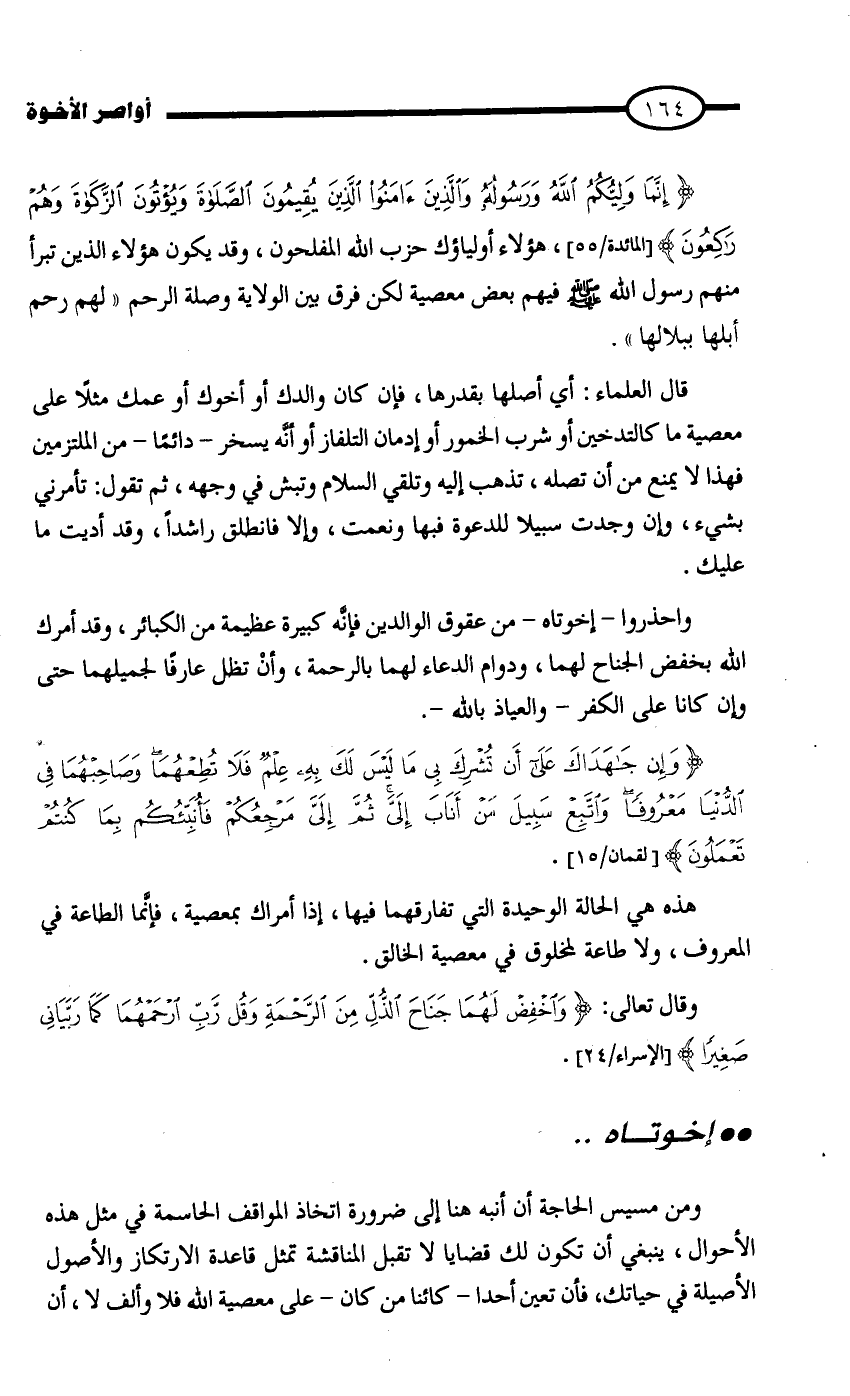 ١٦٤ أواصر الأخوة
﴿ إِنَّمَا وَلِيُّكُمُ ٱللَّهُ وَرَسُولُهُۥ وَٱلَّذِينَ ءَامَنُواْ ٱلَّذِينَ يُقِيمُونَ ٱلصَّلَوٰةَ وَيُؤْتُونَ ٱلزَّكَوٰةَ وَهُمْ
رَٰكِعُونَ ﴾ [المائدة/٥٥] ، هؤلاء أولياؤك حزب الله المفلحون ، وقد يكون هؤلاء الذين تبرأ
منهم رسول الله ﷺ فيهم بعض معصية لكن فرق بين الولاية وصلة الرحم « لهم رحم
أبلها ببلالها » .
قال العلماء : أي أصلها بقدرها ، فإن كان والدك أو أخوك أو عمك مثلًا على
معصية ما كالتدخين أو شرب الخمور أو إدمان التلفاز أو أنَّه يسخر – دائمًا – من الملتزمين
فهذا لا يمنع من أن تصله ، تذهب إليه وتلقي السلام وتبش في وجهه ، ثم تقول: تأمرني
بشيء ، وإن وجدت سبيلا للدعوة فبها ونعمت ، وإلا فانطلق راشداً ، وقد أديت ما
عليك .
واحذروا – إخوتاه – من عقوق الوالدين فإنَّه كبيرة عظيمة من الكبائر ، وقد أمرك
الله بخفض الجناح لهما ، ودوام الدعاء لهما بالرحمة ، وأنْ تظل عارفًا لجميلهما حتى
وإن كانا على الكفر – والعياذ بالله –.
﴿ وَإِن جَٰهَدَاكَ عَلَىٰٓ أَن تُشْرِكَ بِى مَا لَيْسَ لَكَ بِهِۦ عِلْمٌ فَلَا تُطِعْهُمَا ۖ وَصَاحِبْهُمَا فِى
ٱلدُّنْيَا مَعْرُوفًا ۖ وَٱتَّبِعْ سَبِيلَ مَنْ أَنَابَ إِلَىَّ ۚ ثُمَّ إِلَىَّ مَرْجِعُكُمْ فَأُنَبِّئُكُم بِمَا كُنتُمْ
تَعْمَلُونَ ﴾ [ لقمان/١٥] .
هذه هي الحالة الوحيدة التي تفارقهما فيها ، إذا أمراك بمعصية ، فإنَّما الطاعة في
المعروف ، ولا طاعة لمخلوق في معصية الخالق .
وقال تعالى: ﴿ وَٱخْفِضْ لَهُمَا جَنَاحَ ٱلذُّلِّ مِنَ ٱلرَّحْمَةِ وَقُل رَّبِّ ٱرْحَمْهُمَا كَمَا رَبَّيَانِى
صَغِيرًا ﴾ [الإسراء/٢٤] .
●● إخوتــاه ..
ومن مسيس الحاجة أن أنبه هنا إلى ضرورة اتخاذ المواقف الحاسمة في مثل هذه
الأحوال ، ينبغي أن تكون لك قضايا لا تقبل المناقشة تمثل قاعدة الارتكاز والأصول
الأصيلة في حياتك، فأن تعين أحدا – كائنا من كان – على معصية الله فلا وألف لا ، أن